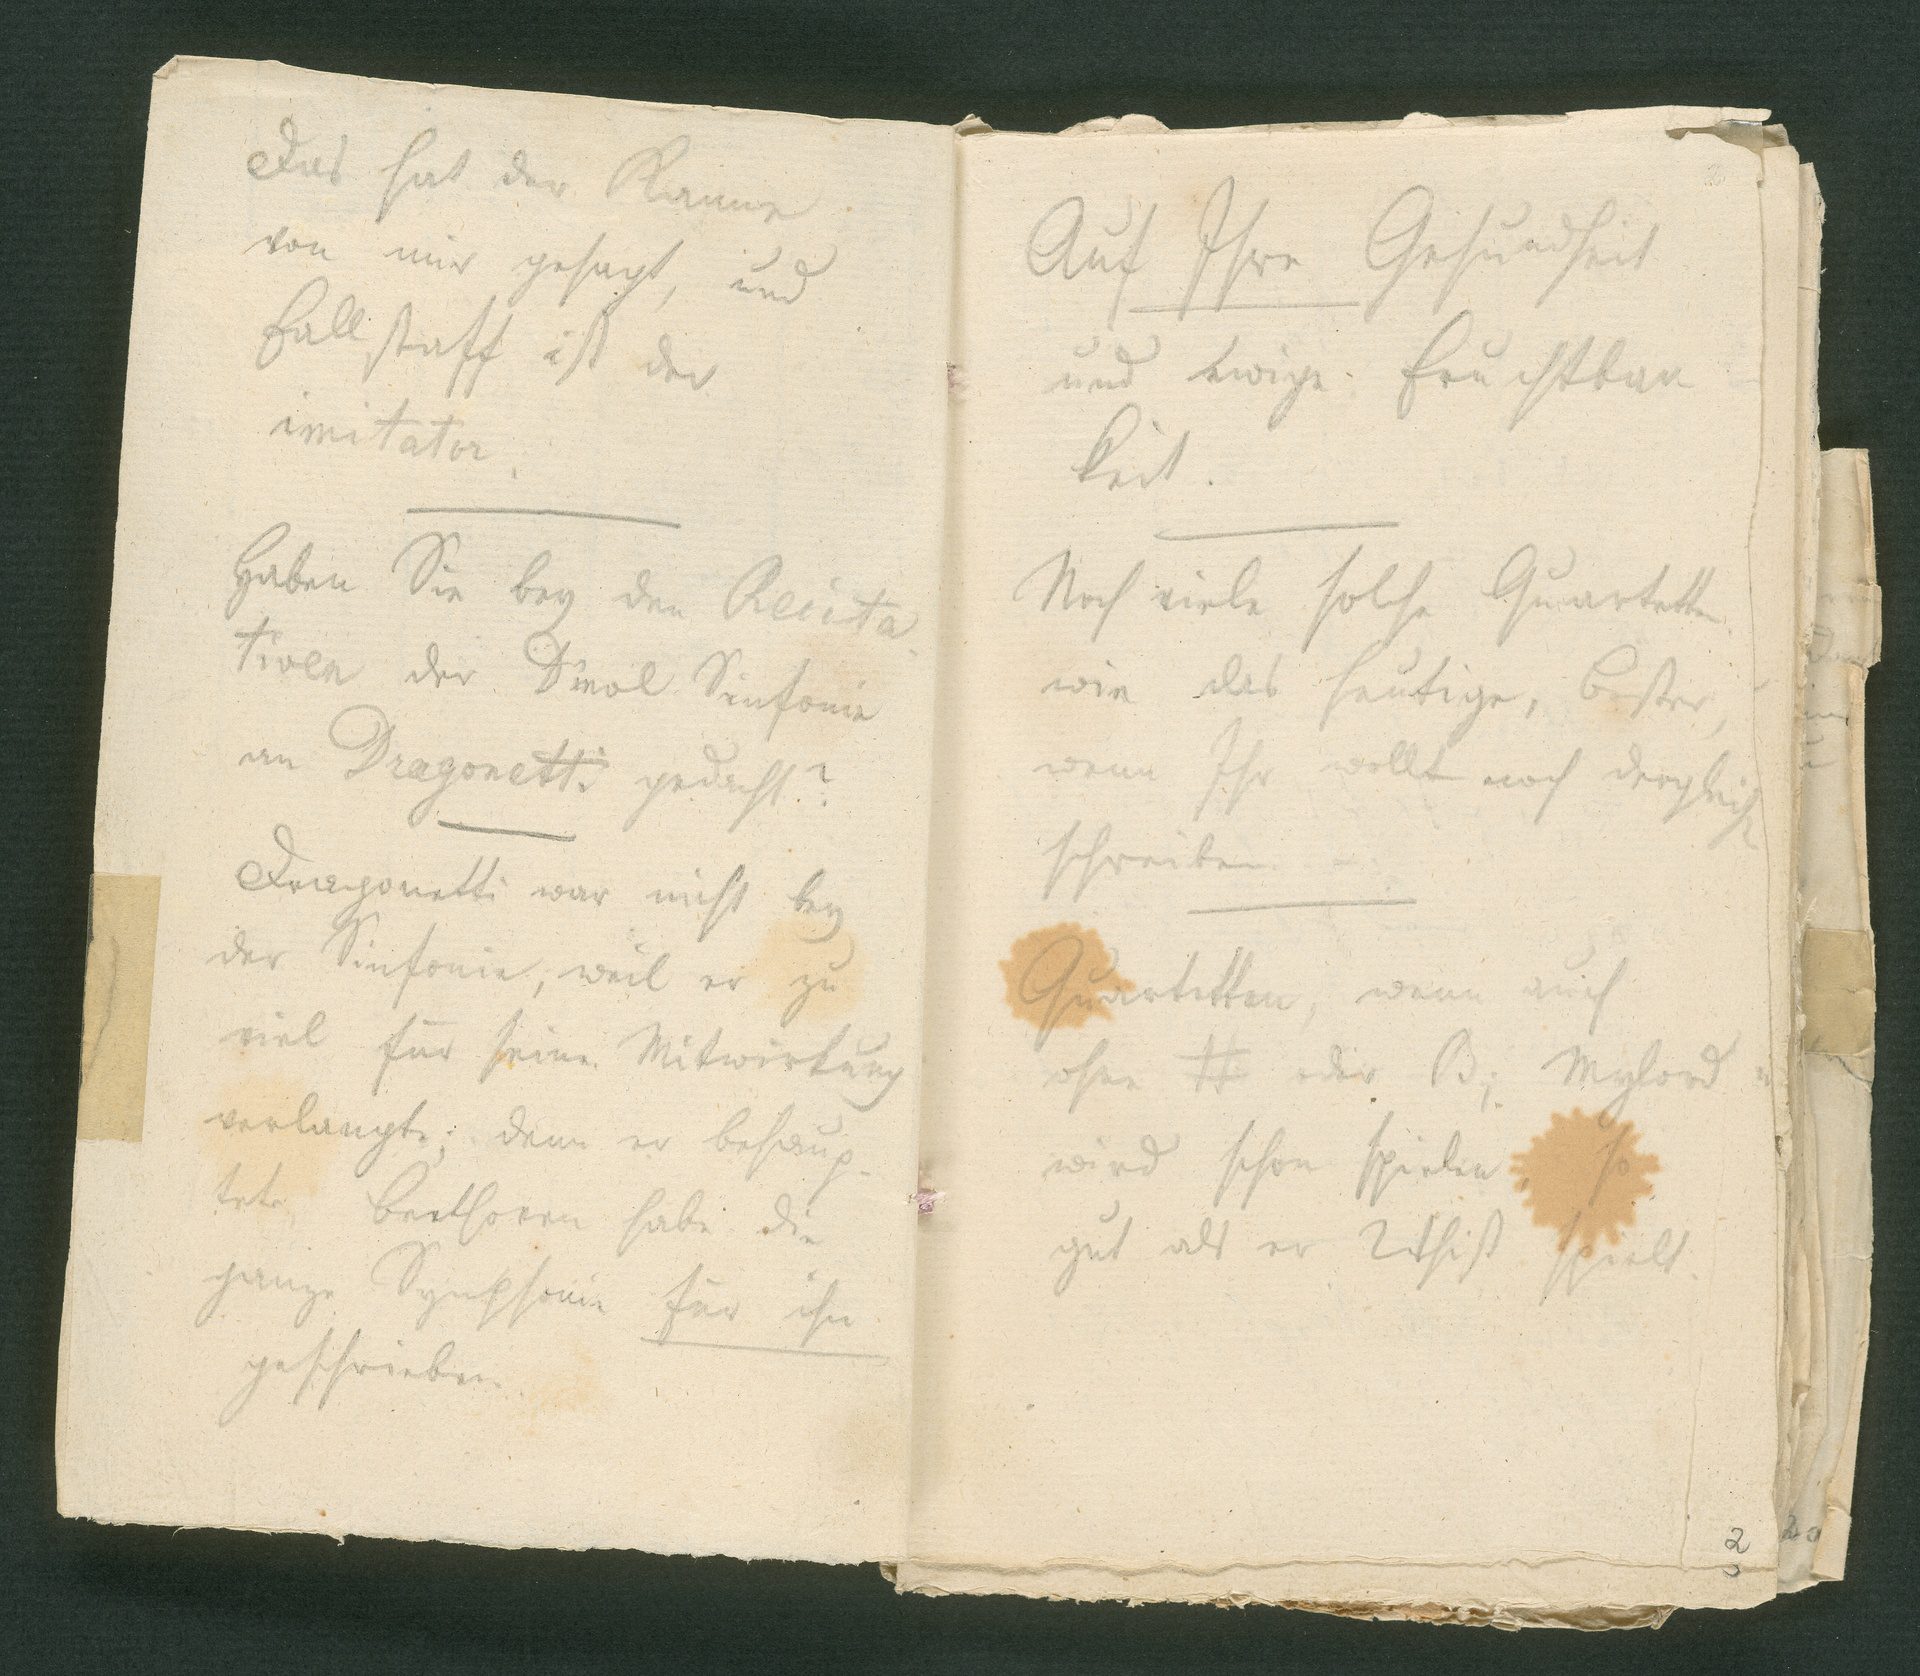 Das hat der Kanne
von mir gesagt, und
Fallstaff ist der
imitator.
Haben Sie bey den Recita
tiven der Dmol Sinfonie
an Dragonetti gedacht?
Dragonetti war nicht bey
der Sinfonie, weil er zu
viel für seine Mitwirkung
verlangte; denn er behaup-
tete, Beethoven habe die
ganze Symphonie für ihn
geschrieben.
Auf Ihre Gesundheit
und ewige Fruchtbar
keit.
Noch viele solche Quartetten
wie das heutige, Bester,
wenn Ihr wollt noch dergleich
schreiben.
Quartetten, wenn auch
ohne # oder B; Mylord
wird schon spielen, so
gut als er Whist spielt.
2